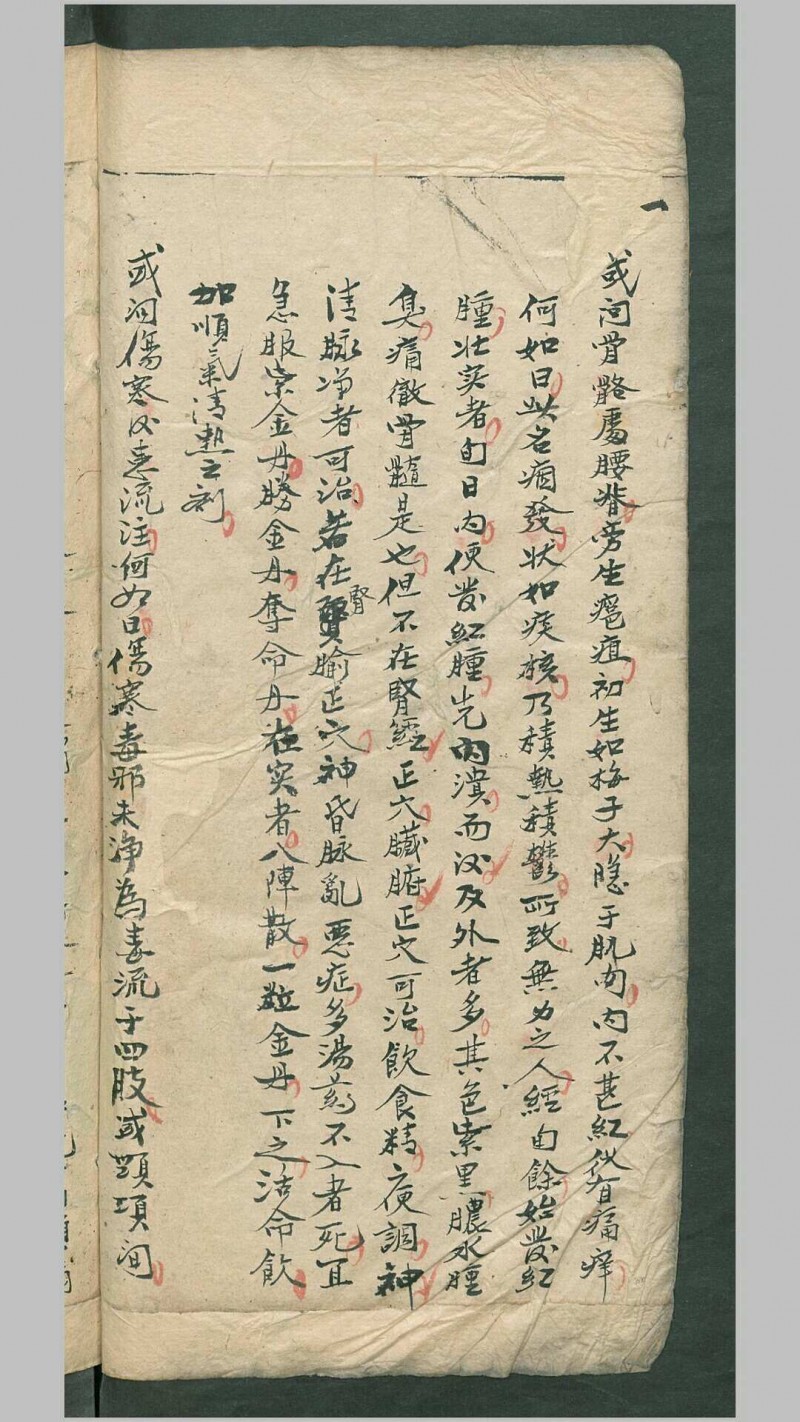 一
或问骨骼處腰脊旁生瘡疽初生如梅子大隱于肌肉内不甚紅但有痛痒
何如曰此名痼發状如痰核乃積熱積鬱所致無力之人經旬餘始發紅
腫壮实者旬日内便發紅腫先内潰而後及外者多其色紫黑膿水腥
臭痛徹骨髓是也但不在腎經正穴臟腑正穴可治飲食精液調神
清脉净者可治若在腎腧正穴神昏脉亂惡症多湯葯不入者死宜
急服紫金丹勝金丹奪命丹在实者八陣散一粒金丹下之活命飲
加順氣清熱之剂
或问傷寒後患流注何如曰傷寒毒邪未净為毒流于四肢或頭項间